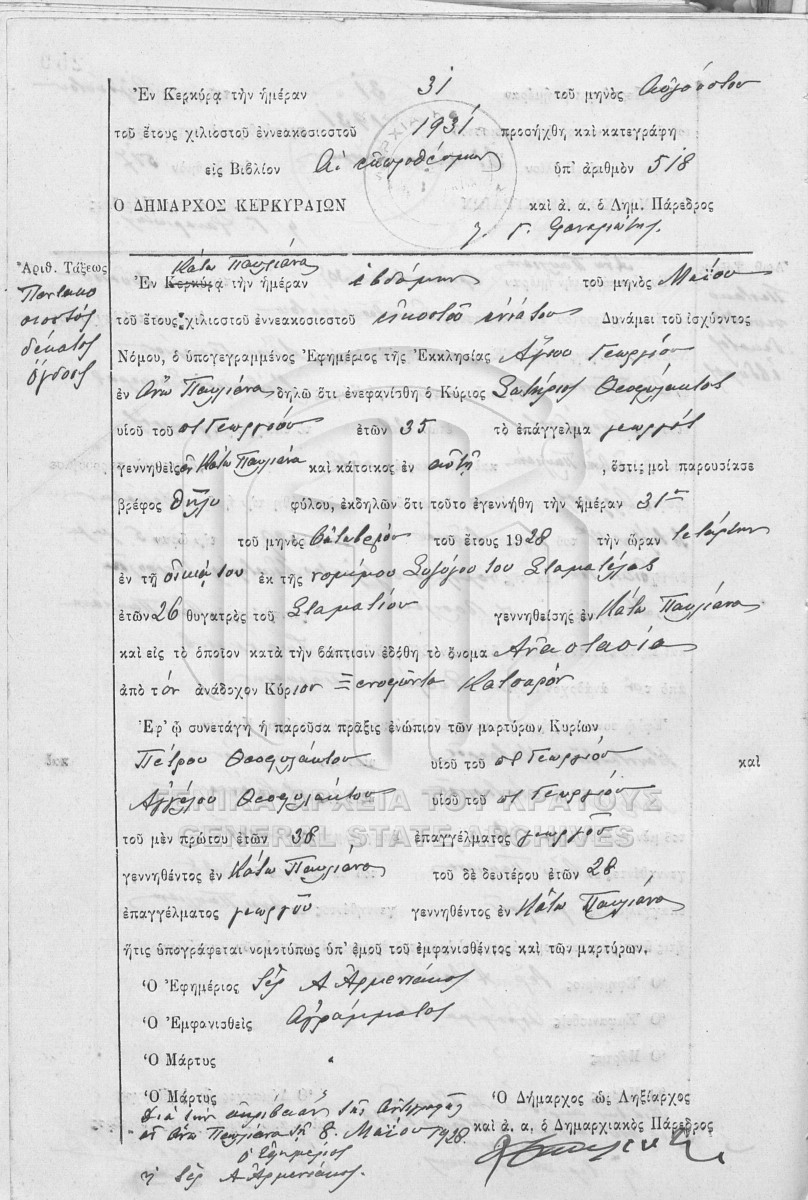 Ἐν Κερκύρᾳ τὴν ἡμέραν 31 τοῦ μηνὸς Αὐγούστου
τοῦ ἔτους χιλιοστοῦ ἐννεακοσιοστοῦ 1931 προσήχθη καὶ κατεγράφη
εἰς Βιβλίον Α. ἐκπροθέσμων ὑπ' ἀριθμὸν 518
Ο ΔΗΜΑΡΧΟΣ ΚΕΡΚΥΡΑΙΩΝ καὶ ἀ. α. ὁ Δημ. Πάρεδρος
Γ.
Ἀριθ. Τάξεως
Πεντακο
σιοστός
δέκατος
ὄγδοος
Κάτω Παυλιάνα
Ἐν Κερκύρᾳ τὴν ἡμέραν ἑβδόμην τοῦ μηνὸς Μαΐου
τοῦ ἔτους χιλιοστοῦ ἐννεακοσιοστοῦ εἰκοστοῦ ἐνάτου Δυνάμει τοῦ ἰσχύοντος
Νόμου, ὁ ὑπογεγραμμένος Ἐφημέριος τῆς Ἐκκλησίας Ἁγίου Γεωργίου
ἐν Ἄνω Παυλιάνα δηλῶ ὅτι ἐνεφανίσθη ὁ Κύριος Σωτήριος Θεοφύλακτος
υἱοῦ τοῦ πτ Γεωργίου ἐτῶν 35 τὸ ἐπάγγελμα γεωργός
γεννηθεὶς ἐν Κάτω Παυλιάνα καὶ κάτοικος ἐν αὐτῇ , ὅστις μοι παρουσίασε
βρέφος θῆλυ φύλου, ἐκδηλῶν ὅτι τοῦτο ἐγεννήθη τὴν ἡμέραν 31ην
τοῦ μηνὸς Ὀκτωβρίου τοῦ ἔτους 1928 τὴν ὥραν τετάρτην
ἐν τῇ οἰκίᾳ του ἐκ τῆς νομίμου συζύγου του Σταματέλλας
ἐτῶν 26 θυγατρὸς τοῦ Σταματίου γεννηθείσης ἐν Κάτω Παυλιάνα
καὶ εἰς τὸ ὁποῖον κατὰ τὴν βάπτισιν ἐδόθη τὸ ὄνομα Ἀναστασία
ἀπὸ τὸν ἀνάδοχον Κύριον Ξενοφῶντα Κατσαρόν
Ἐφ' ᾧ συνετάγη ἡ παροῦσα πρᾶξις ἐνώπιον τῶν μαρτύρων Κυρίων
Πέτρου Θεοφυλάκτου υἱοῦ τοῦ πτ Γεωργίου καὶ
Ἀγγέλου Θεοφυλάκτου υἱοῦ τοῦ πτ Γεωργίου
ΓΕΝΙΚΑ ΑΡΧΕΙΑ ΤΟΥ ΚΡΑΤΟΥΣ
GENERAL STATE ARCHIVES
τοῦ μὲν πρώτου ἐτῶν 38 ἐπαγγέλματος γεωργοῦ
γεννηθέντος ἐν Κάτω Παυλιάνα τοῦ δὲ δευτέρου ἐτῶν 28
ἐπαγγέλματος γεωργοῦ γεννηθέντος ἐν Κάτω Παυλιάνα
ἥτις ὑπογράφεται νομοτύπως ὑπ' ἐμοῦ τοῦ ἐμφανισθέντος καὶ τῶν μαρτύρων.
Ὁ Ἐφημέριος Ἱερ Α Ἀρμενιάκος
Ὁ Ἐμφανισθεὶς Ἀγράμματος
Ὁ Μάρτυς "
Ὁ Μάρτυς " Ὁ Δήμαρχος ὡς Ληξίαρχος
Διὰ τὴν ἀκρίβειαν τῆς ἀντιγραφῆς καὶ ἀ. α. ὁ Δημαρχιακὸς Πάρεδρος
ἐν Ἄνω Παυλιάνα τῇ 8 Μαΐου 1928
ὁ Ἐφημέριος
Ἱερ Α Ἀρμενιάκος.